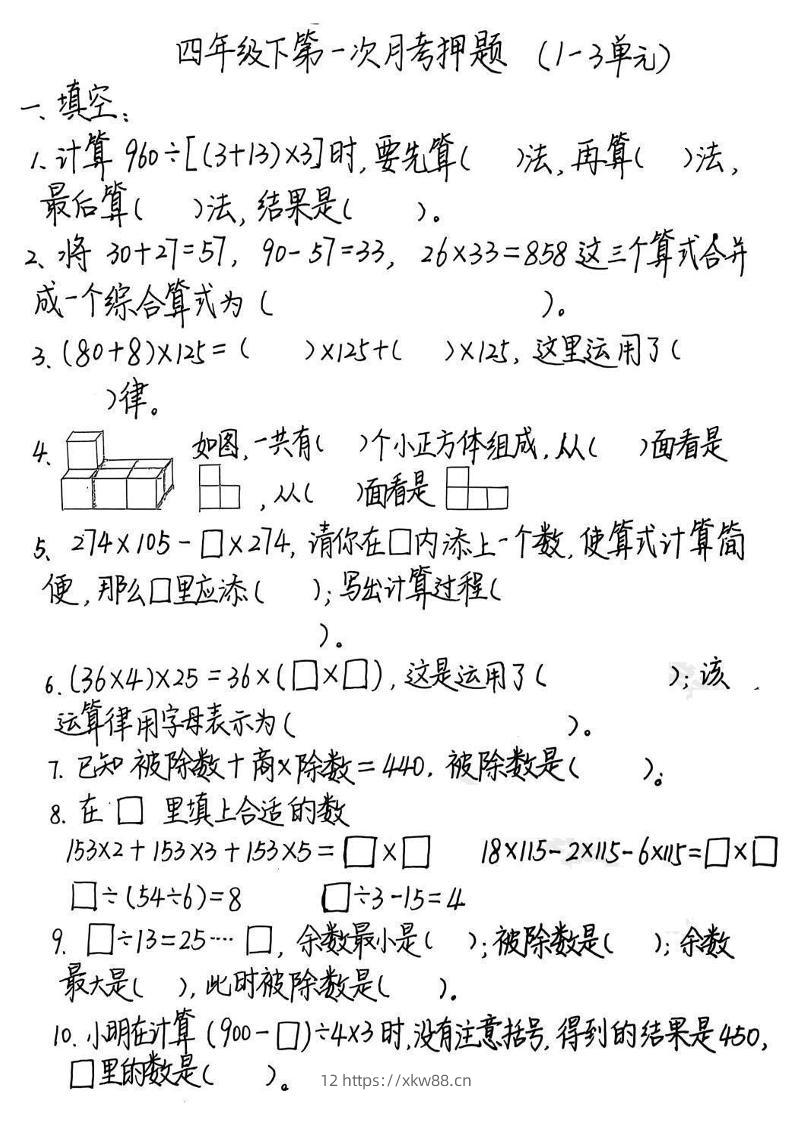 四年级下第一次月考押题 (1-3单元)
一、填空:
1、计算 960÷[(3+13)×3]时,要先算( )法,再算( )法,
最后算( )法,结果是( )。
2、将 30+27=57, 90-57=33, 26×33=858 这三个算式合并
成一个综合算式为( )。
3、(80+8)×125=( )×125+( )×125,这里运用了(
)律。
4、 如图,一共有( )个小正方体组成,从( )面看是
,从( )面看是
5、274×105-□×274,请你在□内添上一个数,使算式计算简
便,那么□里应添( );写出计算过程(
)。
6.(36×4)×25=36×(□×□),这是运用了( );该
运算律用字母表示为( )。
7. 已知 被除数+商×除数=440,被除数是( )。
8. 在 □ 里填上合适的数
153×2+153×3+153×5=□×□ 18×115-2×115-6×115=□×□
□÷(54÷6)=8 □÷3-15=4
9. □÷13=25····□,余数最小是( );被除数是( );余数
最大是( ),此时被除数是( )。
10. 小明在计算 (900-□)÷4×3时,没有注意括号,得到的结果是450,
□里的数是( )。
12 https://xkw88.cn